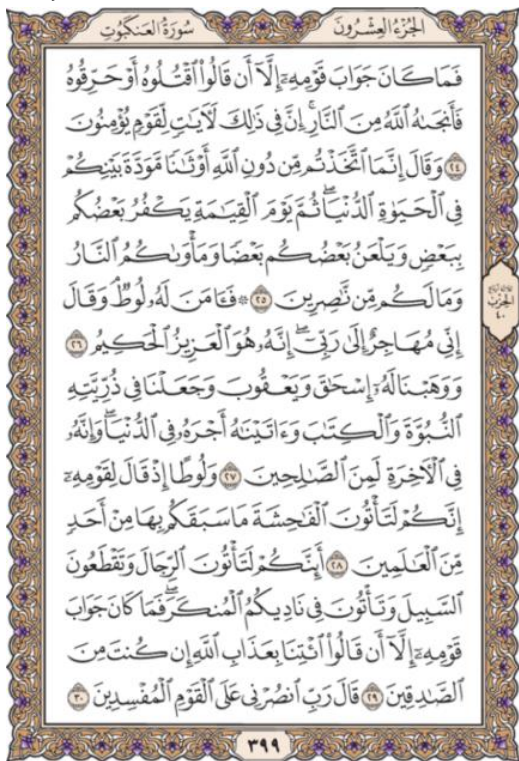 الجُزْءُ العِشْرُونَ
سُورَةُ العَنكَبُوتِ
فَمَا كَانَ جَوَابَ قَوْمِهِۦٓ إِلَّآ أَن قَالُوا۟ ٱقْتُلُوهُ أَوْ حَرِّقُوهُ
فَأَنجَىٰهُ ٱللَّهُ مِنَ ٱلنَّارِۚ إِنَّ فِى ذَٰلِكَ لَـَٔايَـٰتٍ لِّقَوْمٍ يُؤْمِنُونَ
٢٤ وَقَالَ إِنَّمَا ٱتَّخَذْتُم مِّن دُونِ ٱللَّهِ أَوْثَـٰنًا مَّوَدَّةَ بَيْنِكُمْ
فِى ٱلْحَيَوٰةِ ٱلدُّنْيَاۖ ثُمَّ يَوْمَ ٱلْقِيَـٰمَةِ يَكْفُرُ بَعْضُكُم
بِبَعْضٍ وَيَلْعَنُ بَعْضُكُم بَعْضًا وَمَأْوَىٰكُمُ ٱلنَّارُ
وَمَا لَكُم مِّن نَّـٰصِرِينَ ٢٥ ۞ فَـَٔامَنَ لَهُۥ لُوطٌۘ وَقَالَ
إِنِّى مُهَاجِرٌ إِلَىٰ رَبِّىٓۖ إِنَّهُۥ هُوَ ٱلْعَزِيزُ ٱلْحَكِيمُ ٢٦
وَوَهَبْنَا لَهُۥٓ إِسْحَـٰقَ وَيَعْقُوبَ وَجَعَلْنَا فِى ذُرِّيَّتِهِ
ٱلنُّبُوَّةَ وَٱلْكِتَـٰبَ وَءَاتَيْنَـٰهُ أَجْرَهُۥ فِى ٱلدُّنْيَاۖ وَإِنَّهُۥ
فِى ٱلْـَٔاخِرَةِ لَمِنَ ٱلصَّـٰلِحِينَ ٢٧ وَلُوطًا إِذْ قَالَ لِقَوْمِهِۦٓ
إِنَّكُمْ لَتَأْتُونَ ٱلْفَـٰحِشَةَ مَا سَبَقَكُم بِهَا مِنْ أَحَدٍ
مِّنَ ٱلْعَـٰلَمِينَ ٢٨ أَئِنَّكُمْ لَتَأْتُونَ ٱلرِّجَالَ وَتَقْطَعُونَ
ٱلسَّبِيلَ وَتَأْتُونَ فِى نَادِيكُمُ ٱلْمُنكَرَۖ فَمَا كَانَ جَوَابَ
قَوْمِهِۦٓ إِلَّآ أَن قَالُوا۟ ٱئْتِنَا بِعَذَابِ ٱللَّهِ إِن كُنتَ مِنَ
ٱلصَّـٰدِقِينَ ٢٩ قَالَ رَبِّ ٱنصُرْنِى عَلَى ٱلْقَوْمِ ٱلْمُفْسِدِينَ ٣٠
الحِزْب
٤٠
٣٩٩